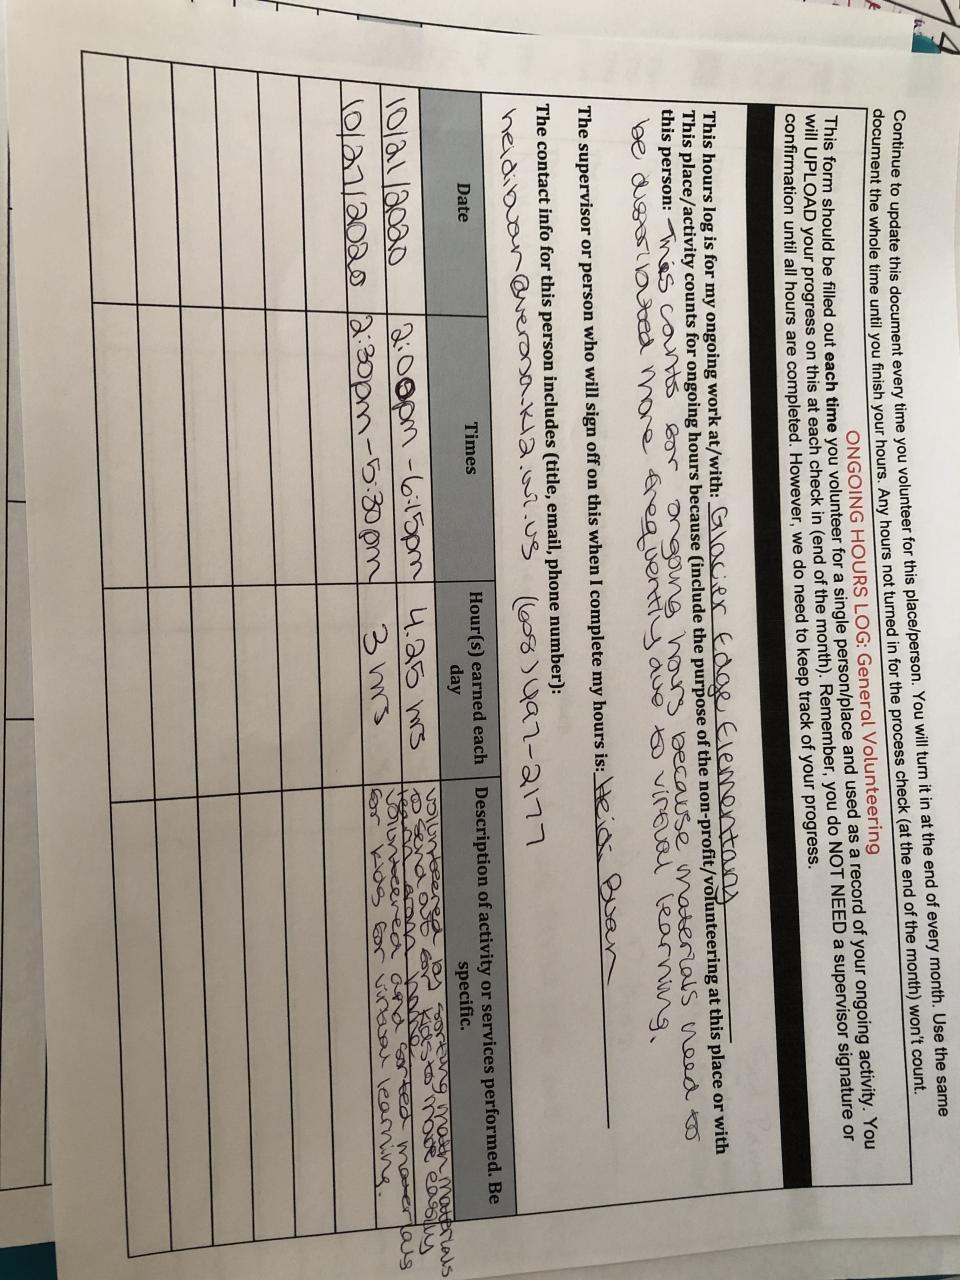 Continue to update this document every time you volunteer for this place/person. You will turn it in at the end of every month. Use the same
document the whole time until you finish your hours. Any hours not turned in for the process check (at the end of the month) won't count.
ONGOING HOURS LOG: General Volunteering
This form should be filled out each time you volunteer for a single person/place and used as a record of your ongoing activity. You
will UPLOAD your progress on this at each check in (end of the month). Remember, you do NOT NEED a supervisor signature or
confirmation until all hours are completed. However, we do need to keep track of your progress.
This hours log is for my ongoing work at/with: Glacier Edge Elementary
This place/activity counts for ongoing hours because (include the purpose of the non-profit/volunteering at this place or with
this person: This counts for ongoing hours because materials need to
be distributed more frequently due to virtual learning.
The supervisor or person who will sign off on this when I complete my hours is: Heidi Buan
The contact info for this person includes (title, email, phone number):
heidibuan@verona.k12.wi.us (608) 497-2177
Date Times Hour(s) earned each day Description of activity or services performed. Be specific.
10/21/2020 2:00pm-6:15pm 4.25 hrs volunteered by sorting math materials
to send out for kids to more easily
learn from home.
10/27/2020 2:30pm-5:30pm 3 hrs volunteered and sorted materials
for kids for virtual learning.